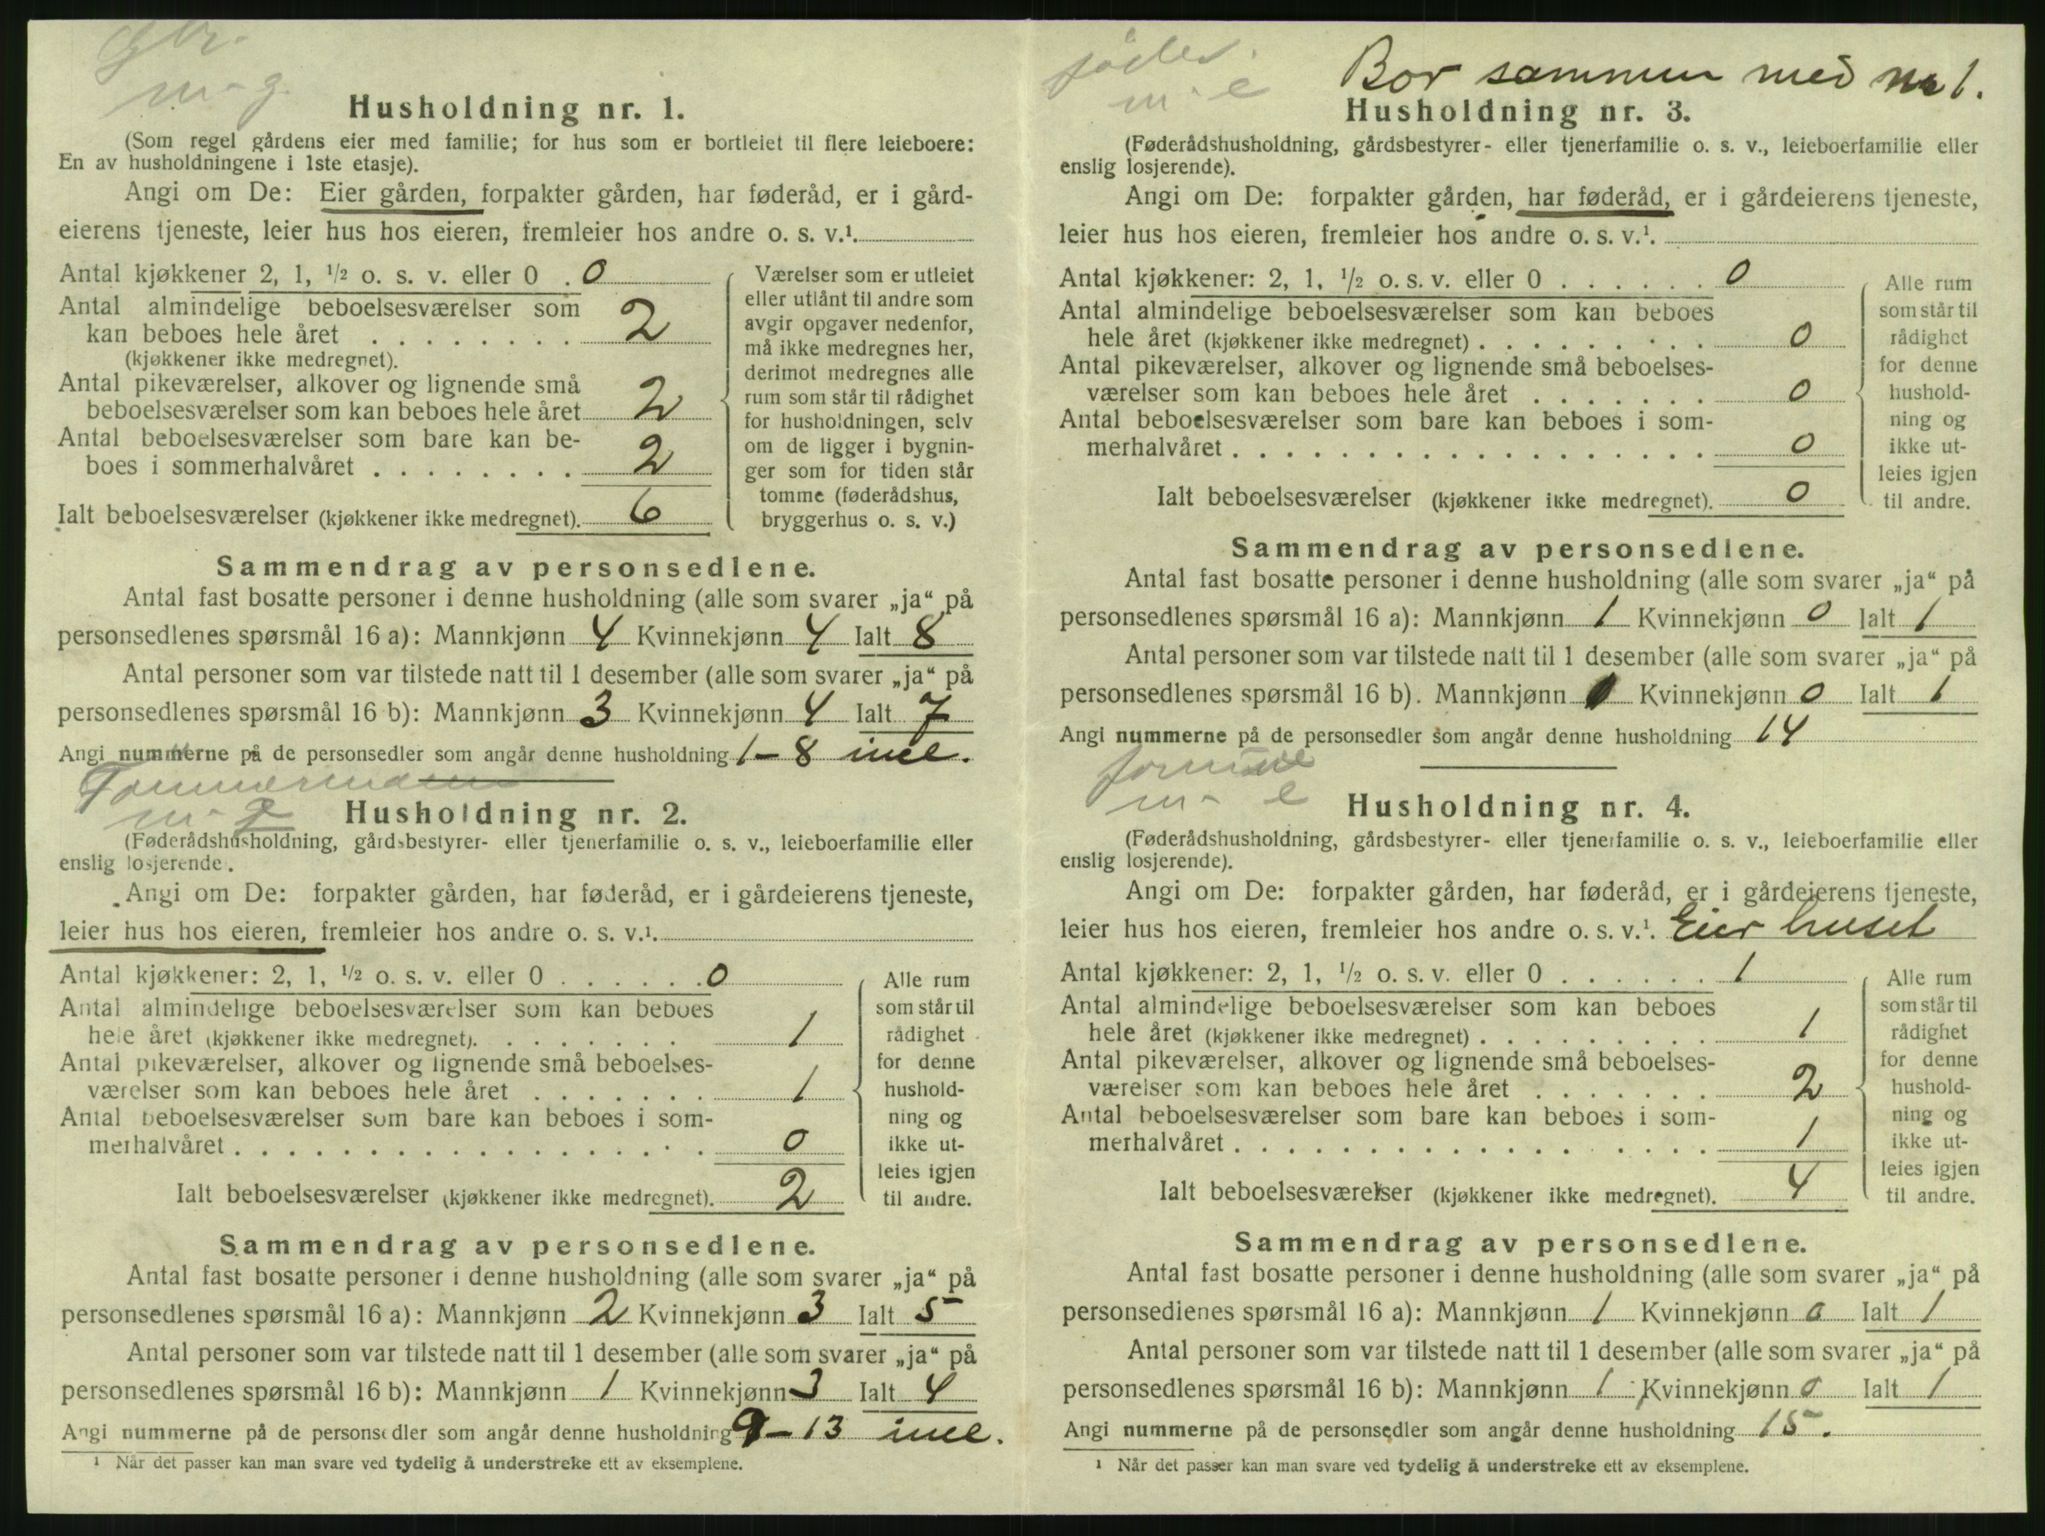 Gbr.
m - g.
Husholdning nr. 1.
(Som regel gårdens eier med familie; for hus som er bortleiet til flere leieboere:
En av husholdningene i 1ste etasje).
Angi om De: Eier gården, forpakter gården, har føderåd, er i gård-
eierens tjeneste, leier hus hos eieren, fremleier hos andre o. s. v.¹.
Antal kjøkkener 2, 1, ½ o. s. v. eller 0 . 0
Antal almindelige beboelsesværelser som
kan beboes hele året . . . . . . . . 2
(kjøkkener ikke medregnet).
Antal pikeværelser, alkover og lignende små
beboelsesværelser som kan beboes hele året 2
Antal beboelsesværelser som bare kan be-
boes i sommerhalvåret . . . . . . . . 2
Ialt beboelsesværelser (kjøkkener ikke medregnet). 6
Værelser som er utleiet
eller utlånt til andre som
avgir opgaver nedenfor,
må ikke medregnes her,
derimot medregnes alle
rum som står til rådighet
for husholdningen, selv
om de ligger i bygnin-
ger som for tiden står
tomme (føderådshus,
bryggerhus o. s. v.)
Sammendrag av personsedlene.
Antal fast bosatte personer i denne husholdning (alle som svarer „ja“ på
personsedlenes spørsmål 16 a): Mannkjønn 4 Kvinnekjønn 4 Ialt 8
Antal personer som var tilstede natt til 1 desember (alle som svarer „ja“ på
personsedlenes spørsmål 16 b): Mannkjønn 3 Kvinnekjønn 4 Ialt 7
Angi nummerne på de personsedler som angår denne husholdning 1 - 8 incl.
Tømmermann
m - g
Husholdning nr. 2.
(Føderådshusholdning, gårdsbestyrer- eller tjenerfamilie o. s. v., leieboerfamilie eller
enslig losjerende.
Angi om De: forpakter gården, har føderåd, er i gårdeierens tjeneste,
leier hus hos eieren, fremleier hos andre o. s. v.¹.
Antal kjøkkener: 2, 1, ½ o. s. v. eller 0 . . . . . . 0
Antal almindelige beboelsesværelser som kan beboes
hele året (kjøkkener ikke medregnet). . . . . . . . 1
Antal pikeværelser, alkover og lignende små beboelses-
værelser som kan beboes hele året . . . . . . . 1
Antal beboelsesværelser som bare kan beboes i som-
merhalvåret . . . . . . . . . . . . . . . . . . 0
Ialt beboelsesværelser (kjøkkener ikke medregnet). 2
Alle rum
som står til
rådighet
for denne
hushold-
ning og
ikke ut-
leies igjen
til andre.
Sammendrag av personsedlene.
Antal fast bosatte personer i denne husholdning (alle som svarer „ja“ på
personsedlenes spørsmål 16 a): Mannkjønn 2 Kvinnekjønn 3 Ialt 5
Antal personer som var tilstede natt til 1 desember (alle som svarer „ja“ på
personsedlenes spørsmål 16 b): Mannkjønn 1 Kvinnekjønn 3 Ialt 4
Angi nummerne på de personsedler som angår denne husholdning 9 - 13 incl.
¹ Når det passer kan man svare ved tydelig å understreke ett av eksemplene.
m - e
Bor sammen med nr 1.
Husholdning nr. 3.
(Føderådshusholdning, gårdsbestyrer- eller tjenerfamilie o. s. v., leieboerfamilie eller
enslig losjerende).
Angi om De: forpakter gården, har føderåd, er i gårdeierens tjeneste,
leier hus hos eieren, fremleier hos andre o. s. v.¹.
Antal kjøkkener: 2, 1, ½ o. s. v. eller 0 . . . . . . 0
Antal almindelige beboelsesværelser som kan beboes
hele året (kjøkkener ikke medregnet) . . . . . . . . . 0
Antal pikeværelser, alkover og lignende små beboelses-
værelser som kan beboes hele året . . . . . . . 0
Antal beboelsesværelser som bare kan beboes i som-
merhalvåret . . . . . . . . . . . . . . . . . . 0
Ialt beboelsesværelser (kjøkkener ikke medregnet). 0
Alle rum
som står til
rådighet
for denne
hushold-
ning og
ikke ut-
leies igjen
til andre.
Sammendrag av personsedlene.
Antal fast bosatte personer i denne husholdning (alle som svarer „ja“ på
personsedlenes spørsmål 16 a): Mannkjønn 1 Kvinnekjønn 0 Ialt 1
Antal personer som var tilstede natt til 1 desember (alle som svarer „ja“ på
personsedlenes spørsmål 16 b). Mannkjønn 1 Kvinnekjønn 0 Ialt 1
Angi nummerne på de personsedler som angår denne husholdning 14
m - e
Husholdning nr. 4.
(Føderådshusholdning, gårdsbestyrer- eller tjenerfamilie o. s. v., leieboerfamilie eller
enslig losjerende).
Angi om De: forpakter gården, har føderåd, er i gårdeierens tjeneste,
leier hus hos eieren, fremleier hos andre o. s. v.¹. Eier huset
Antal kjøkkener: 2, 1, ½ o. s. v. eller 0 . . . . . . 1
Antal almindelige beboelsesværelser som kan beboes
hele året (kjøkkener ikke medregnet) . . . . . . . . . 1
Antal pikeværelser, alkover og lignende små beboelses-
værelser som kan beboes hele året . . . . . . . 2
Antal beboelsesværelser som bare kan beboes i som-
merhalvåret . . . . . . . . . . . . . . . . . . 1
Ialt beboelsesværelser (kjøkkener ikke medregnet). 4
Alle rum
som står til
rådighet
for denne
hushold-
ning og
ikke ut-
leies igjen
til andre.
Sammendrag av personsedlene.
Antal fast bosatte personer i denne husholdning (alle som svarer „ja“ på
personsedlenes spørsmål 16 a): Mannkjønn 1 Kvinnekjønn 0 Ialt 1
Antal personer som var tilstede natt til 1 desember (alle som svarer „ja“ på
personsedlenes spørsmål 16 b): Mannkjønn 1 Kvinnekjønn 0 Ialt 1
Angi nummerne på de personsedler som angår denne husholdning 15.
¹ Når det passer kan man svare ved tydelig å understreke ett av eksemplene.